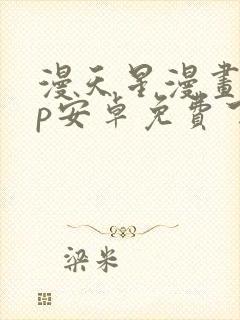 漫天星漫畫
p安卓免費下
梁米